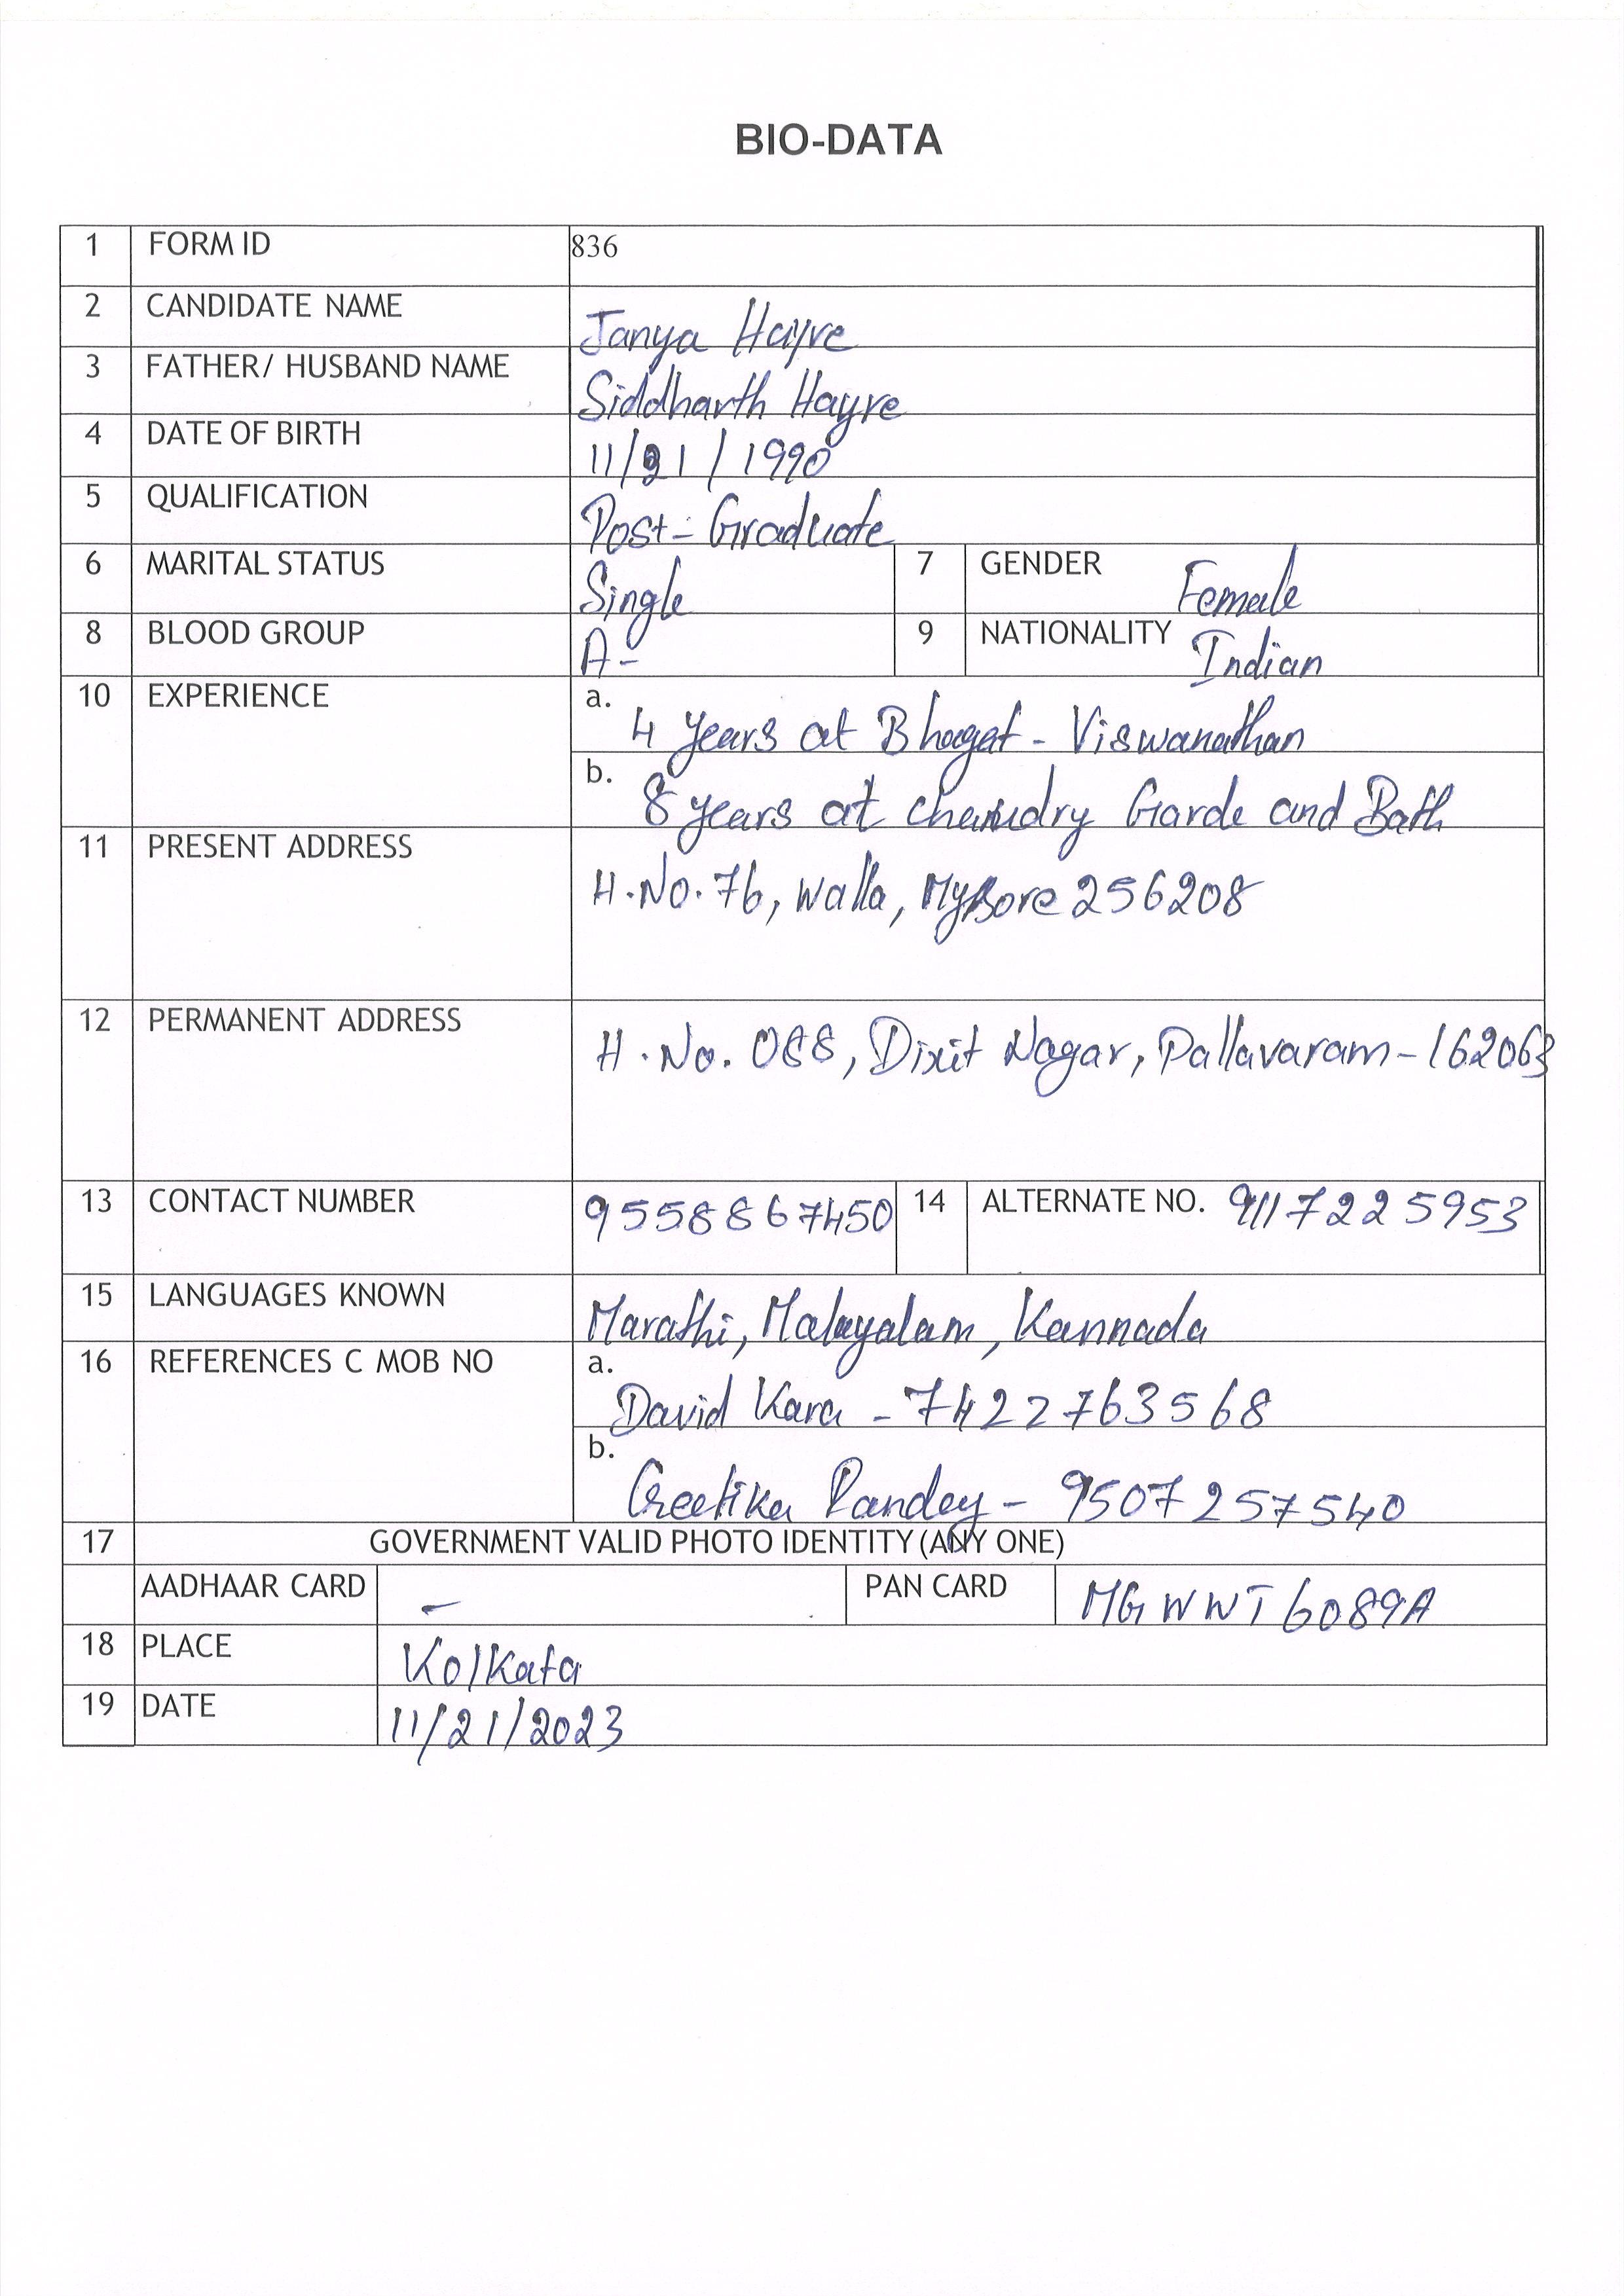 BIO-DATA
1 FORM ID 836
2 CANDIDATE NAME Tanya Hayre
3 FATHER/ HUSBAND NAME Siddharth Hayre
4 DATE OF BIRTH 11/21/1990
5 QUALIFICATION Post-Graduate
6 MARITAL STATUS Single 7 GENDER Female
8 BLOOD GROUP A- 9 NATIONALITY Indian
10 EXPERIENCE a. 4 years at Bhagat-Viswanathan
b. 8 years at chaudry Garde and Bath
11 PRESENT ADDRESS H.No.76, Walla, Mysore 256208
12 PERMANENT ADDRESS H.No. 088, Dixit Nagar, Pallavaram-162063
13 CONTACT NUMBER 9558867450 14 ALTERNATE NO. 9117225953
15 LANGUAGES KNOWN Marathi, Malayalam, Kannada
16 REFERENCES C MOB NO a. David Kara - 7422763568
b. Geetika Pandey - 9507257540
17 GOVERNMENT VALID PHOTO IDENTITY (ANY ONE)
AADHAAR CARD - PAN CARD MGWWT6089A
18 PLACE Kolkata
19 DATE 11/21/2023